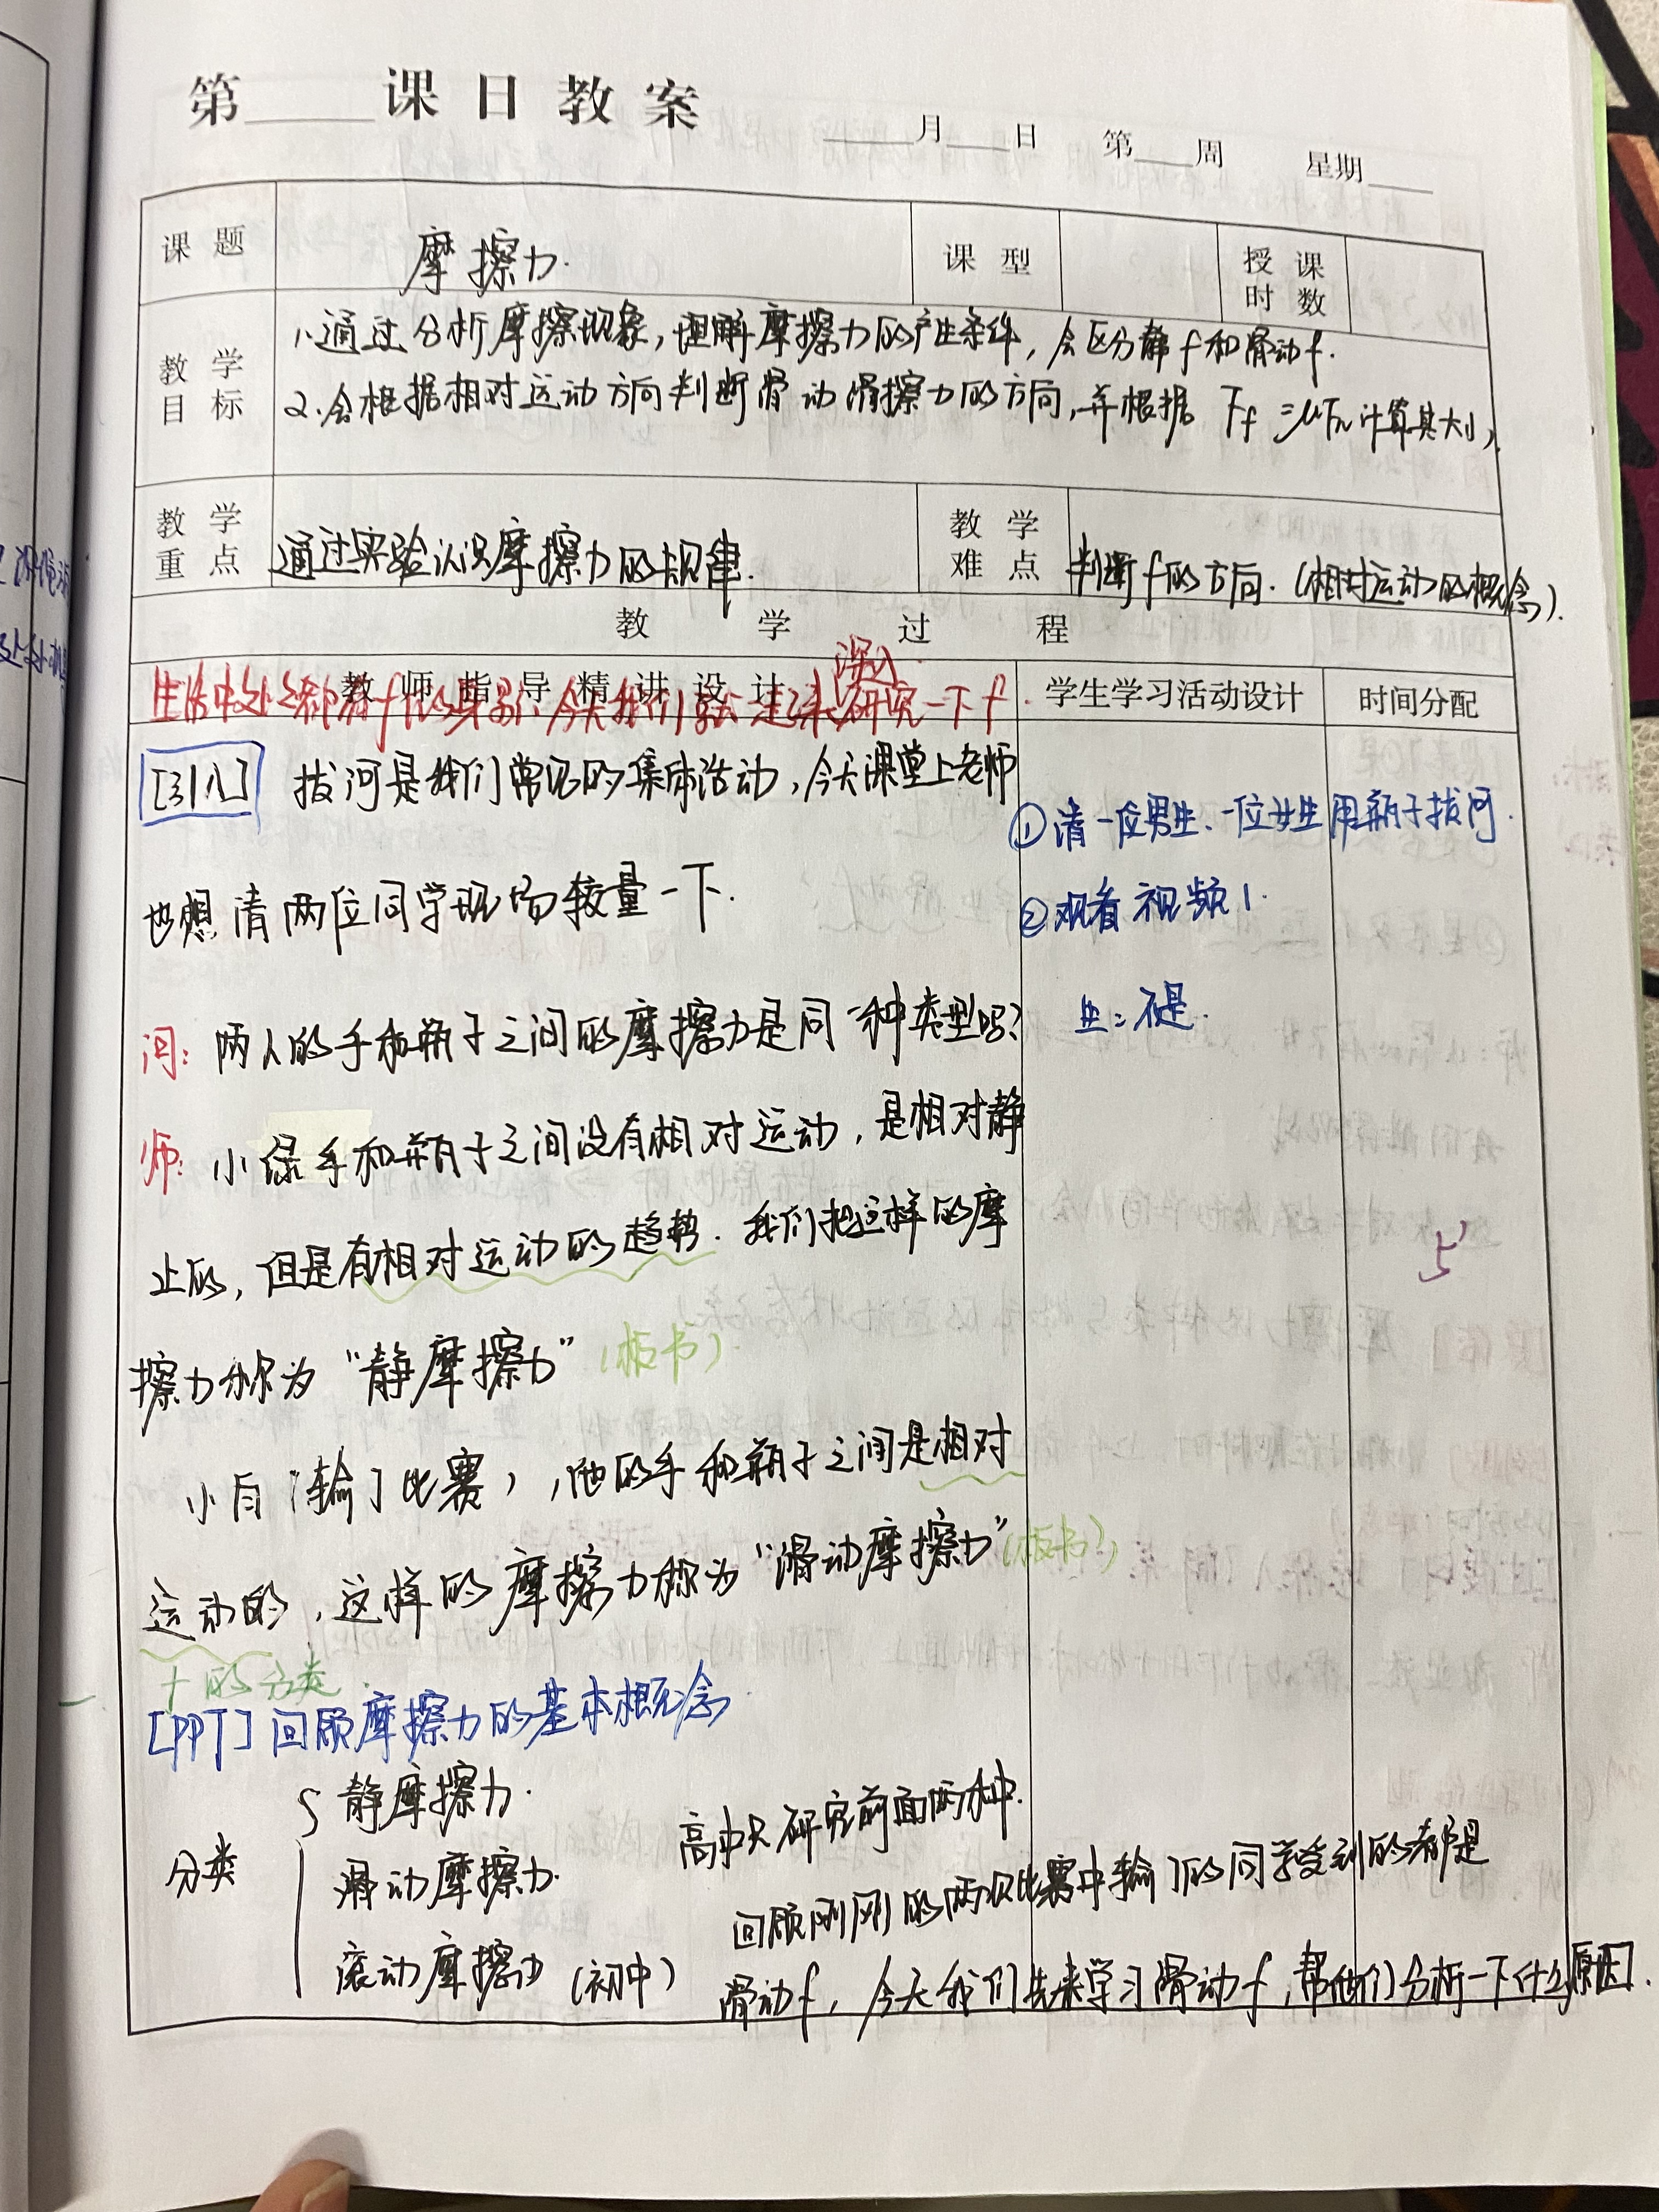 第 课日教案
月 日 第 周 星期
课题 摩擦力. 课型 授课时数
教学目标 1.通过分析摩擦现象,理解摩擦力的产生条件,会区分静f和滑动f.
2.会根据相对运动方向判断滑动滑擦力的方向,并根据 Ff=μFN计算其大小,
教学重点 通过实验认识摩擦力的规律. 教学难点 判断f的方向.(相对运动的概念).
教学过程
教师指导精讲设计 学生学习活动设计 时间分配
深入
生活中处处都有f的身影,今天我们就一起来研究一下f.
[引入] 拔河是我们常见的集体活动,今天课堂上老师
也想请两位同学现场较量一下.
①请一位男生、一位女生用瓶子拔河.
②观看视频1.
问:两人的手和瓶子之间的摩擦力是同一种类型吗?
生:不是.
师:小绿手和瓶子之间没有相对运动,是相对静
止的,但是有相对运动的趋势.我们把这样的摩
5'
擦力称为“静摩擦力”(板书).
小白(输了比赛),他的手和瓶子之间是相对
运动的,这样的摩擦力称为“滑动摩擦力”(板书)
一 f的分类.
[PPT]回顾摩擦力的基本概念.
分类
静摩擦力.
滑动摩擦力.
滚动摩擦力(初中)
高中只研究前面两种.
回顾刚刚的两次比赛中输了的同学受到的都是
滑动f,今天我们先来学习滑动f,帮他们分析一下什么原因.